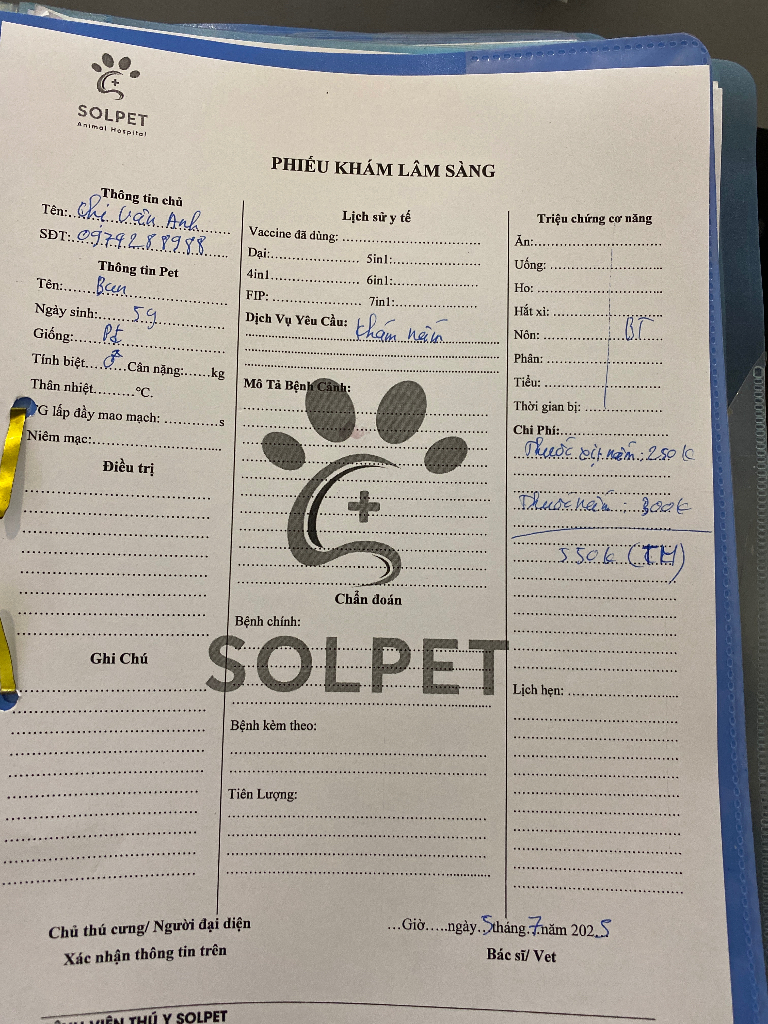 SOLPET
Animal Hospital
PHIẾU KHÁM LÂM SÀNG
Thông tin chủ
Tên: Chị Vân Anh
SĐT: 0979288988
Thông tin Pet
Tên: Bun
Ngày sinh: 5g
Giống: Pt
Tính biệt ♂ Cân nặng:......kg
Thân nhiệt.........°C.
TG lấp đầy mao mạch: ............s
Niêm mạc:
Điều trị
Ghi Chú
Lịch sử y tế
Vaccine đã dùng:
Dại: 5in1:
4in1 6in1:
FIP: 7in1:
Dịch Vụ Yêu Cầu: Khám nấm
Mô Tả Bệnh Cảnh:
Chẩn đoán
Bệnh chính:
SOLPET
Bệnh kèm theo:
Tiên Lượng:
Triệu chứng cơ năng
Ăn:
Uống:
Ho:
Hắt xì:
Nôn: BT
Phân:
Tiểu:
Thời gian bị:
Chi Phí:
Thuốc xịt nấm: 250k
Thuốc nấm: 300k
550k (TM)
Lịch hẹn:
Chủ thú cưng/ Người đại diện
Xác nhận thông tin trên
...Giờ.....ngày 5 tháng 7 năm 2025
Bác sĩ/ Vet
VIỆN THÚ Y SOLPET